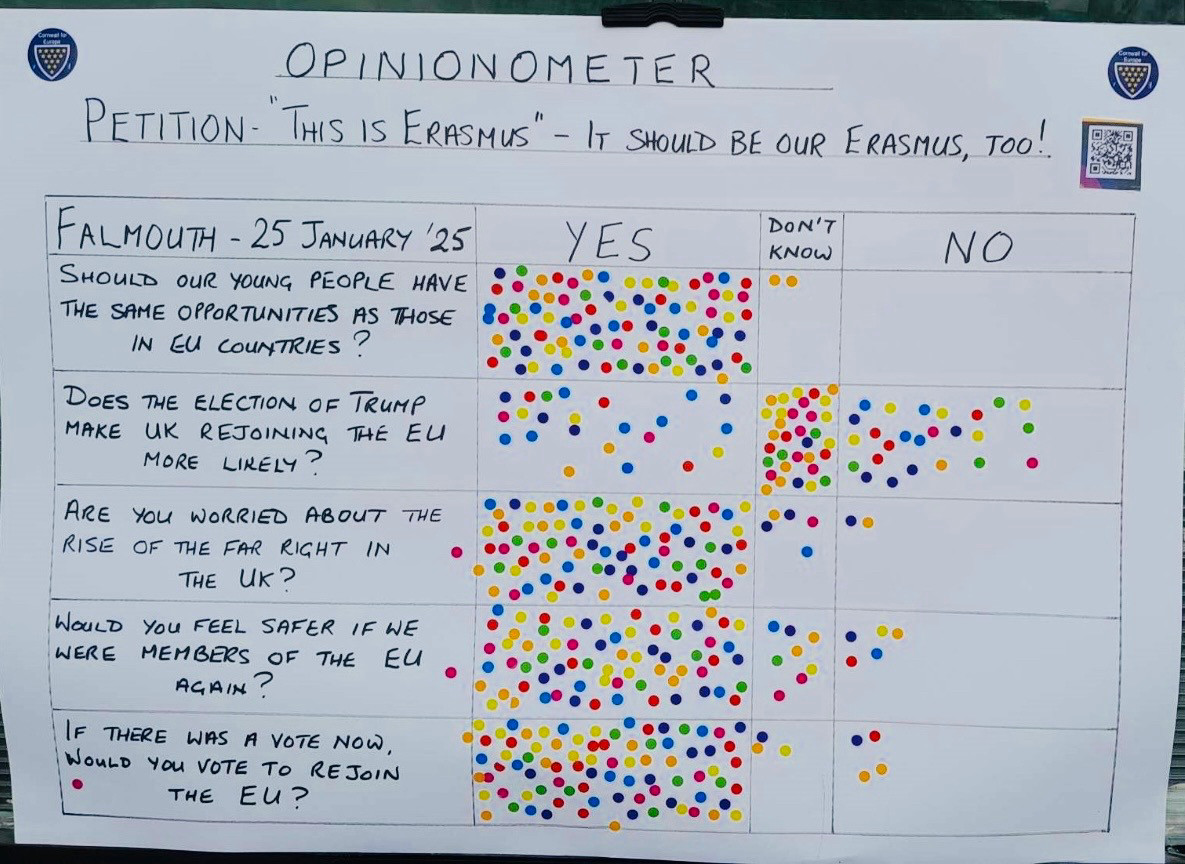 Cornwall for
Europe
Cornwall for
Europe
OPINIONOMETER
PETITION - "THIS IS ERASMUS" - IT SHOULD BE OUR ERASMUS, TOO!
FALMOUTH - 25 JANUARY '25
YES
DON'T
KNOW
NO
SHOULD OUR YOUNG PEOPLE HAVE
THE SAME OPPORTUNITIES AS THOSE
IN EU COUNTRIES?
DOES THE ELECTION OF TRUMP
MAKE UK REJOINING THE EU
MORE LIKELY?
ARE YOU WORRIED ABOUT THE
RISE OF THE FAR RIGHT IN
THE UK?
WOULD YOU FEEL SAFER IF WE
WERE MEMBERS OF THE EU
AGAIN?
IF THERE WAS A VOTE NOW,
WOULD YOU VOTE TO REJOIN
THE EU?